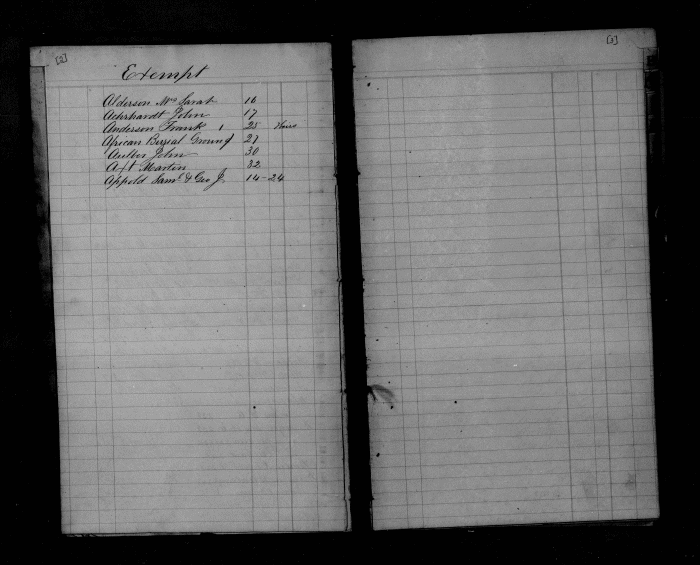 [2]
[3]
Exempt
Alderson Mrs Sarah 16
Aehrhardt John 17
Anderson Frank 1 25 Heirs
African Burial Ground 27
John 30
Axt Martin 32
Appold Saml & Geo J. 14-24